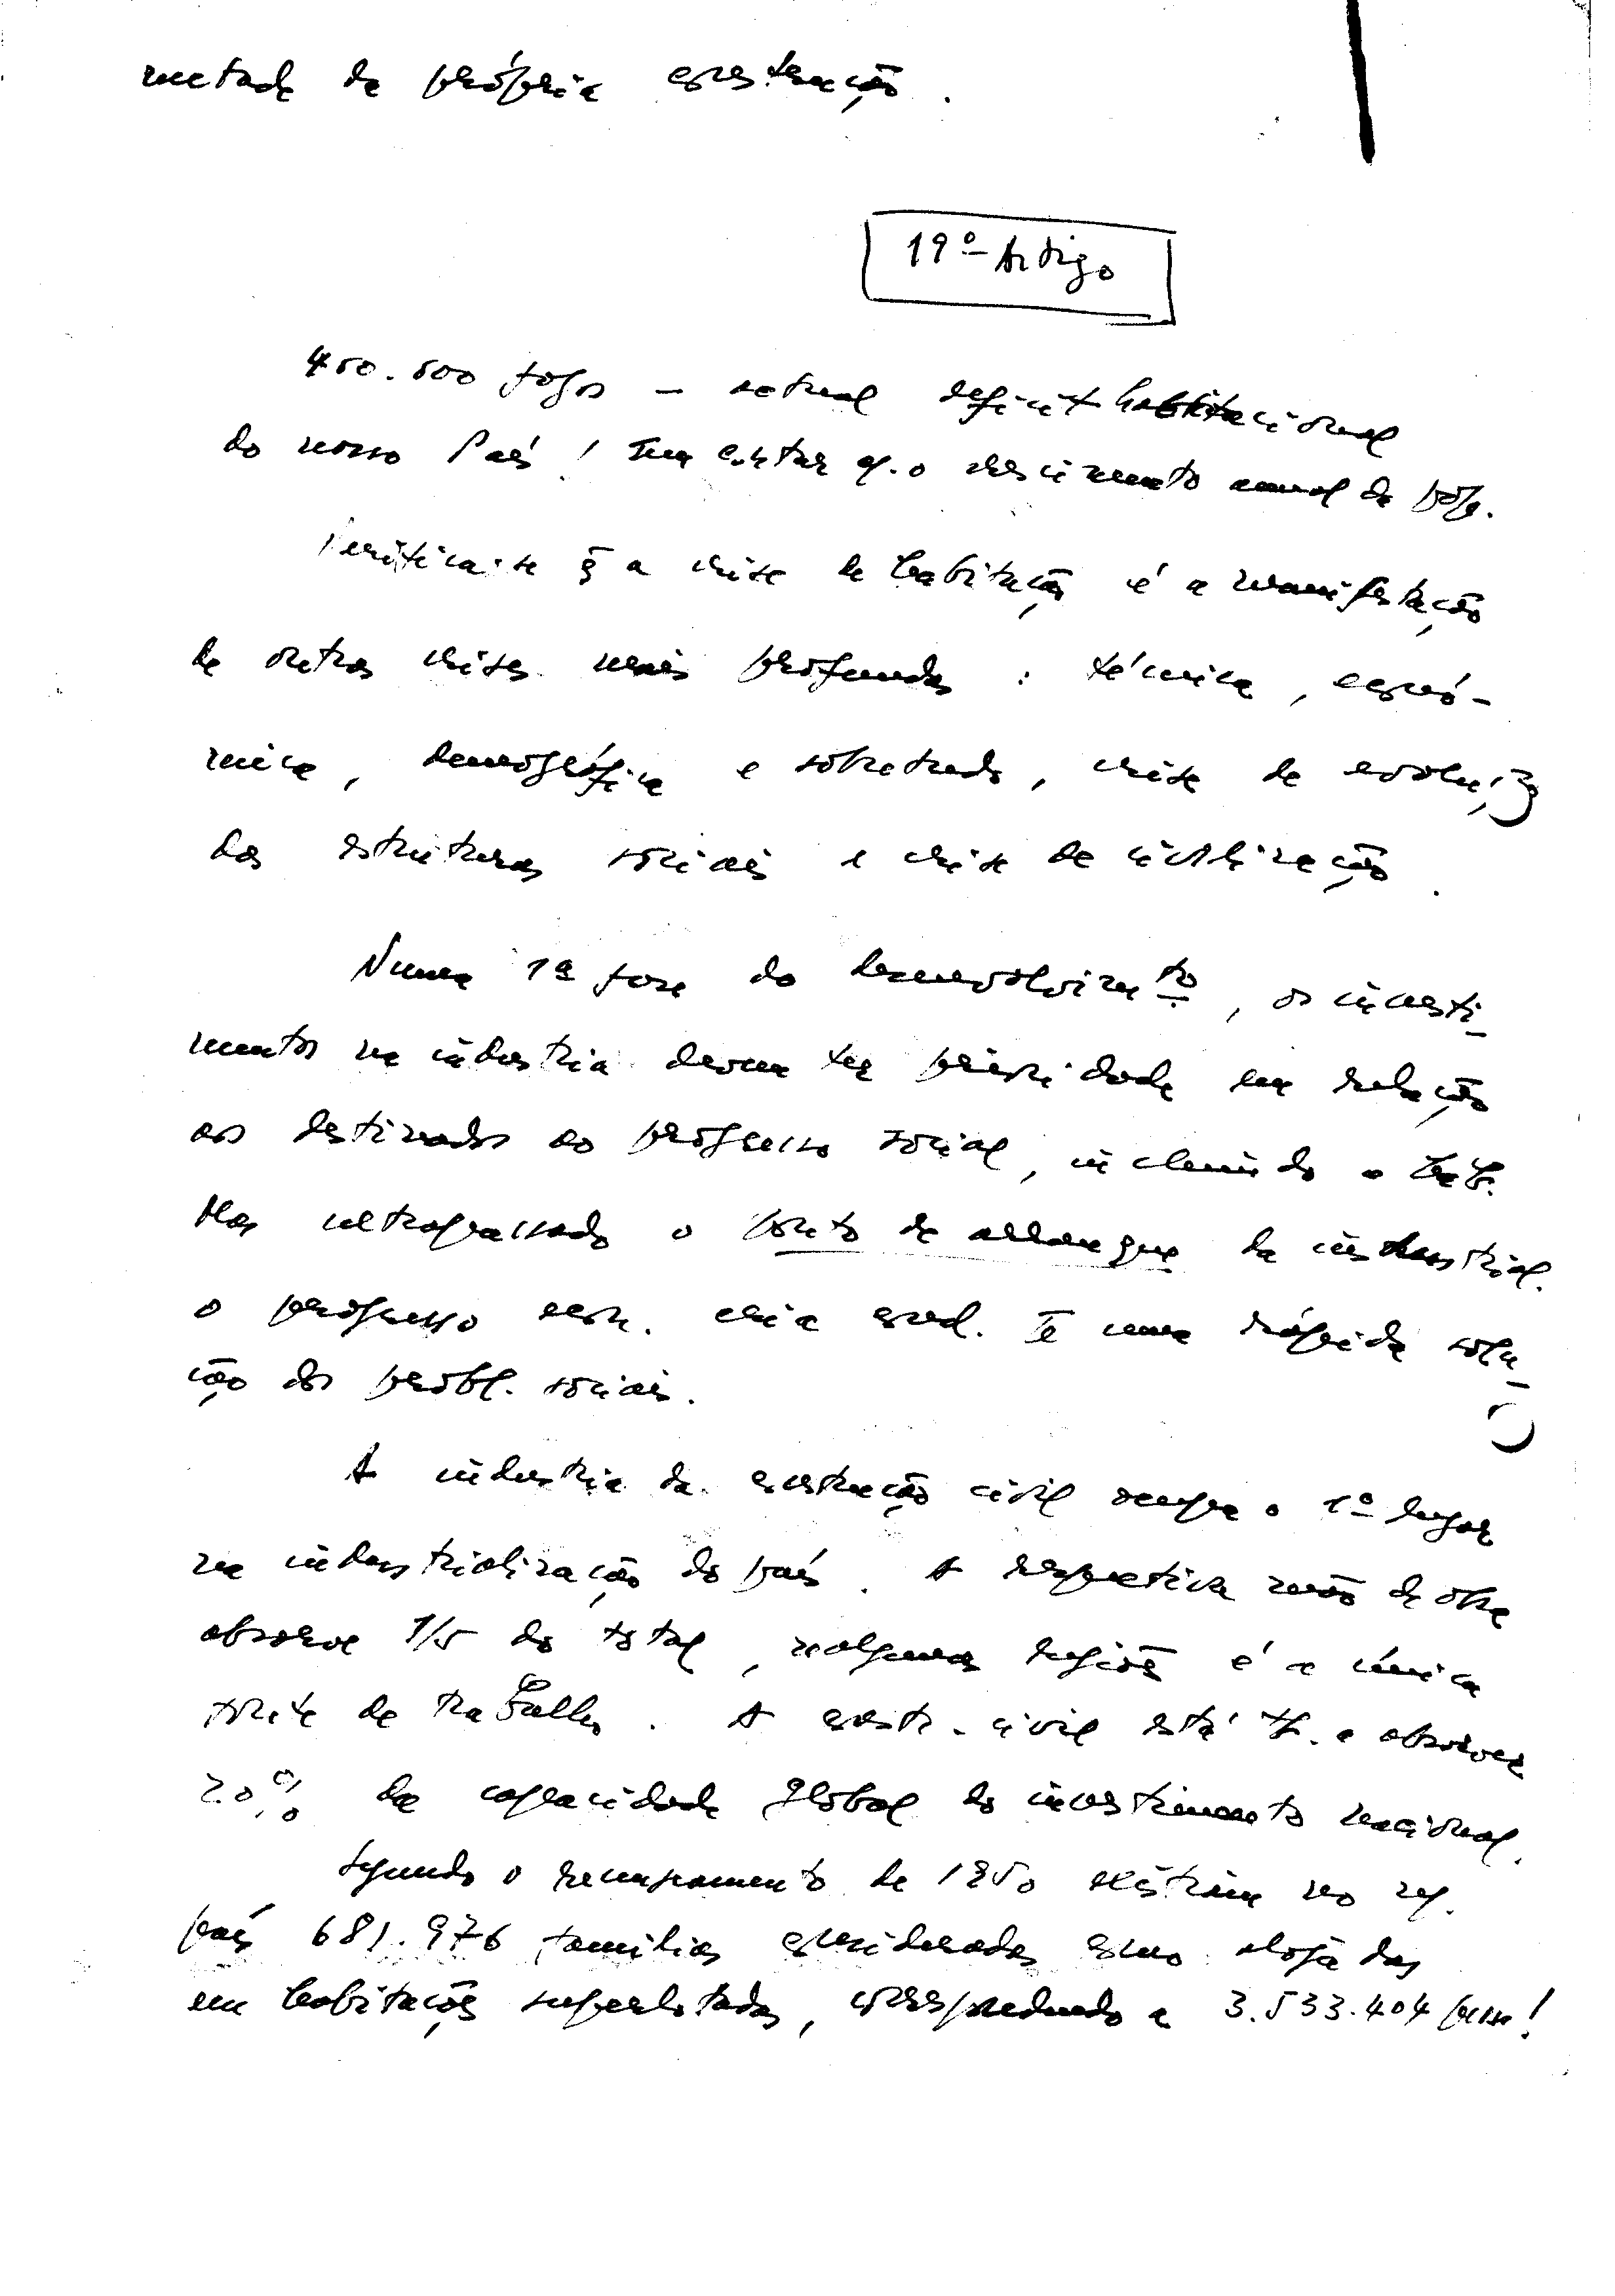 metade da própria construção.
19º Artigo
450.500 fogos — actual deficit habitacional
do nosso País! Sem contar c. o crescimento anual da pop.
Verifica-se q̃ a crise de habitação é a manifestação
de outras crises mais profundas: técnica, econó-
mica, demográfica e sobretudo, crise de evolução
das estruturas sociais e crise de civilização.
Numa 1ª fase do desenvolvimto, os investi-
mentos na industria devem ter prioridade em relação
aos destinados ao progresso social, incluindo a hab.
Mas ultrapassado o ponto de arranque da industrial.
o progresso econ. cria cond. p̃ uma rápida solu-
ção dos probl. sociais.
A industria da construção civil ocupa o 1º lugar
na industrialização do país. A respectiva mão de obra
absorve 1/5 do total, nalgumas regiões é a única
fonte de trabalho. A constr. civil está tb. a absorver
20% da capacidade global do investimento nacional.
Segundo o recenseamento de 1950 existiam no
país 681.976 familias consideradas como alojadas
em habitações superlotadas, correspondendo a 3.533.404 pess!